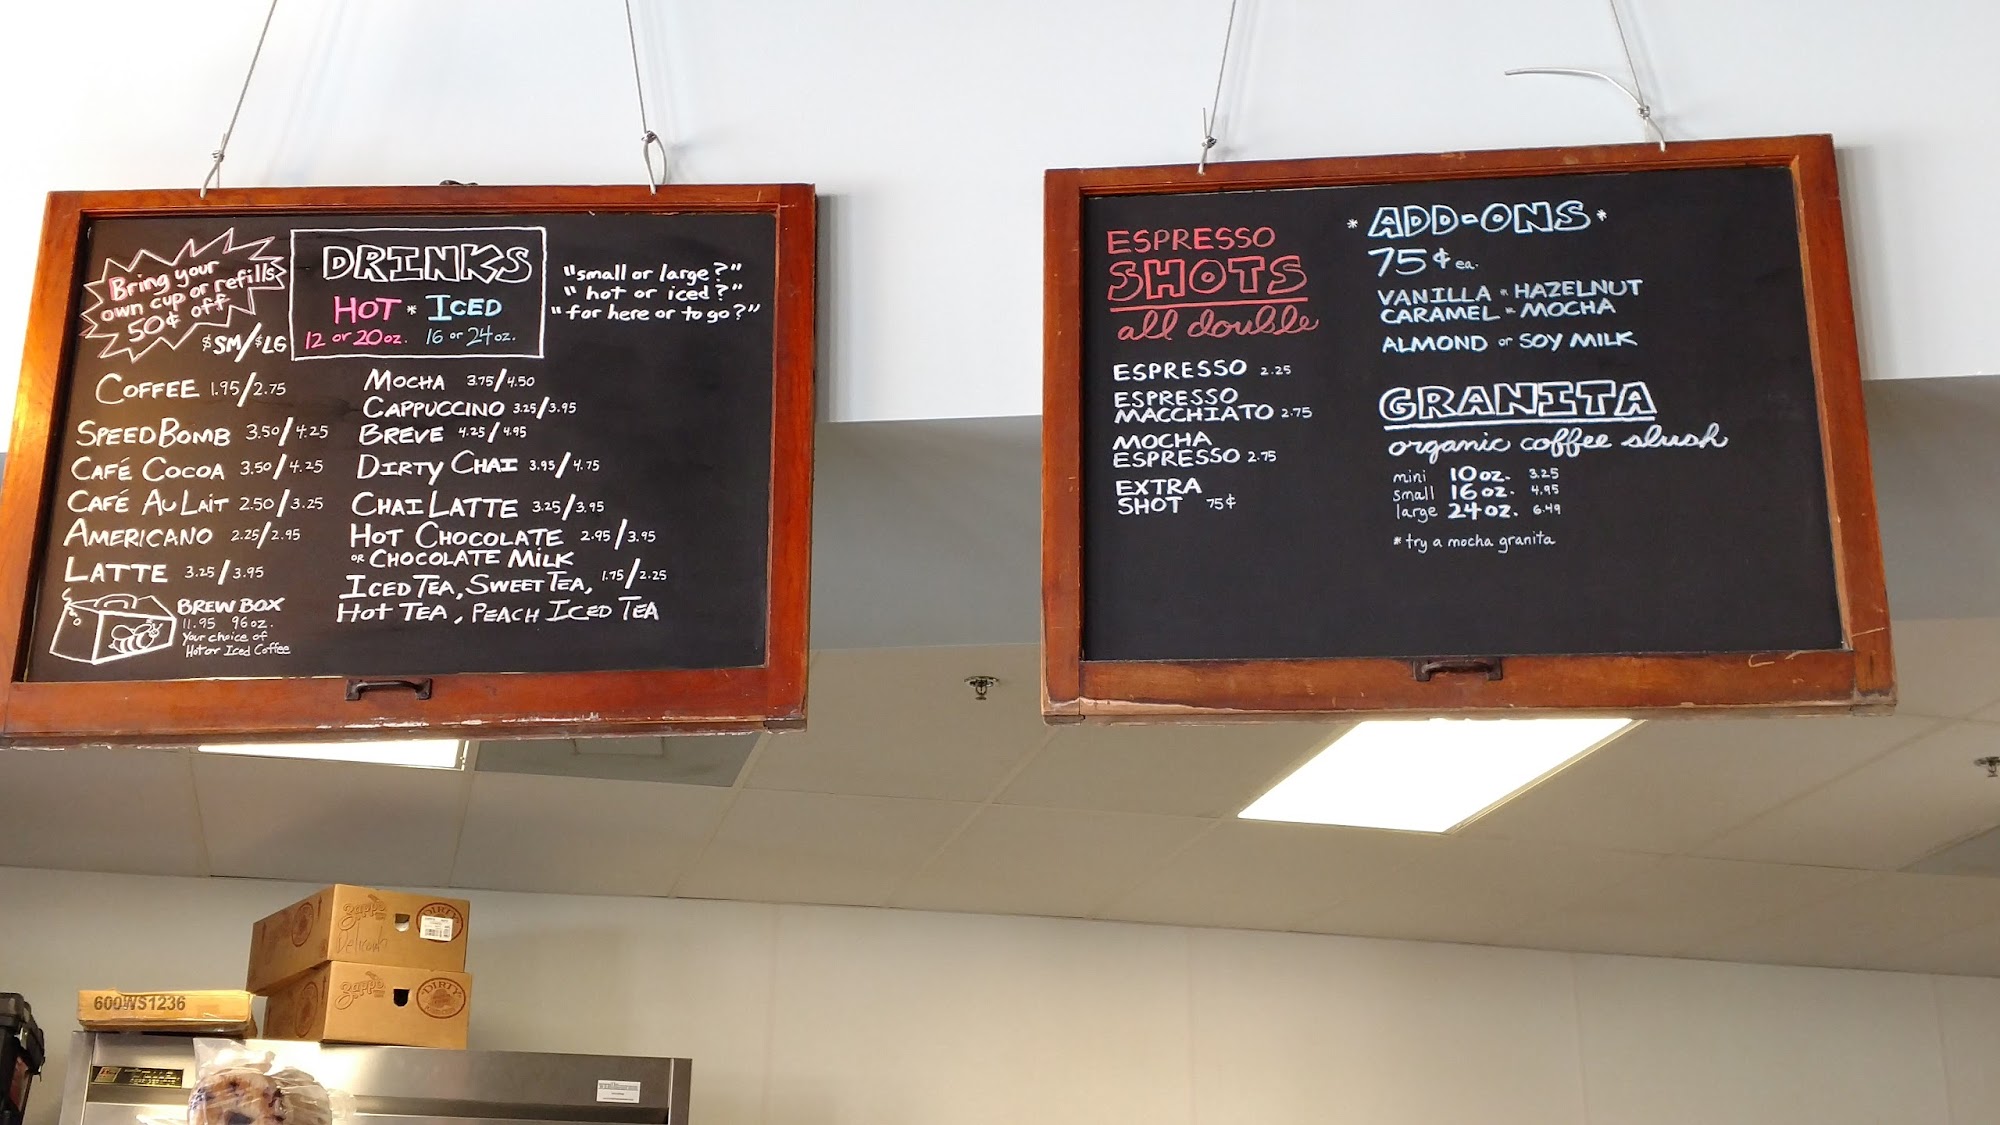 Bring your
own cup or refills
50¢ off
$SM/$LG
DRINKS
HOT * ICED
12 or 20oz. 16 or 24oz.
"small or large?"
"hot or iced?"
"for here or to go?"
COFFEE 1.95/2.75
SPEEDBOMB 3.50/4.25
CAFÉ COCOA 3.50/4.25
CAFÉ AU LAIT 2.50/3.25
AMERICANO 2.25/2.95
LATTE 3.25/3.95
BREW BOX
11.95 96oz.
Your choice of
Hot or Iced Coffee
MOCHA 3.75/4.50
CAPPUCCINO 3.25/3.95
BREVE 4.25/4.95
DIRTY CHAI 3.95/4.75
CHAI LATTE 3.25/3.95
HOT CHOCOLATE 2.95/3.95
OR CHOCOLATE MILK
ICED TEA, SWEET TEA, 1.75/2.25
HOT TEA, PEACH ICED TEA
ESPRESSO
SHOTS
all double
ESPRESSO 2.25
ESPRESSO
MACCHIATO 2.75
MOCHA
ESPRESSO 2.75
EXTRA
SHOT 75¢
* ADD-ONS *
75¢ ea.
VANILLA * HAZELNUT
CARAMEL * MOCHA
ALMOND or SOY MILK
GRANITA
organic coffee slush
mini 10oz. 3.25
small 16oz. 4.95
large 24oz. 6.49
* try a mocha granita
Zapp's
DIRTY
Zapp's
DIRTY
600WS1236